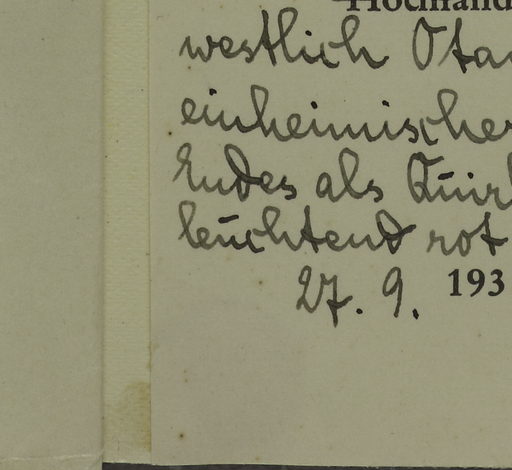 Hochland
westlich Ota
einheimischer
Endes als Quirl
leuchtend rot
27. 9. 193